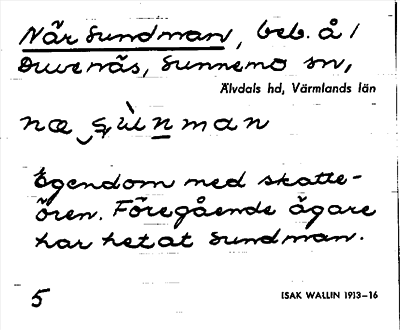 När Sundman, beb. å 1
Duvenäs, Sunnemo sn,
Älvdals hd, Värmlands län
næ ̮s̮ùn̲man
Egendom med skatte-
ören. Föregående ägare
har hetat Sundman.
5
ISAK WALLIN 1913–16